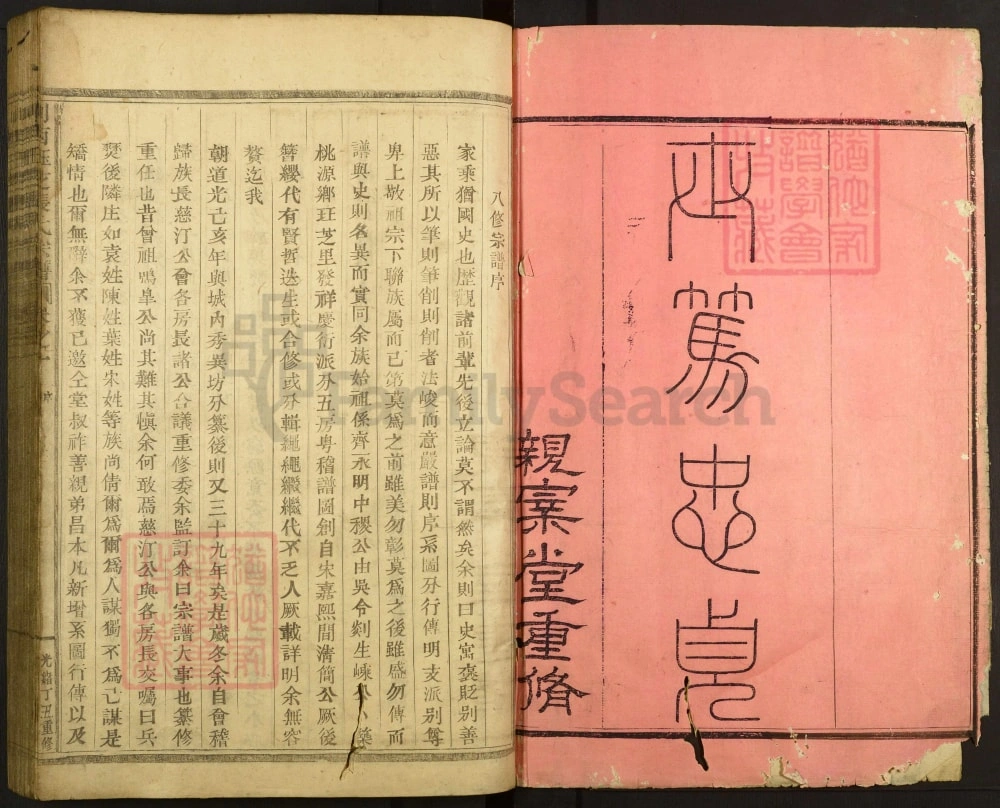 世篤忠貞
親案堂重脩
八修宗譜序
家乘猶國史也歷觀諸前輩先後立論莫不謂然矣余則曰史寓褒貶別善
惡其所以筆則筆削則削者法峻而意嚴譜則序系圖分行傳明支派别尊
卑上敬祖宗下聯族屬而已第莫為之前雖美勿彰莫為之後雖盛勿傳而
譜與史則名異而實同余族始祖係齊永明中稷公由吳令剡生嵊公
桃源鄉玨芝里發祥慶衍派分五房粤稽譜圖創自宋嘉熙間清簡公厥後
簪纓代有賢哲迭生或合修或分輯繩繩繼繼代不乏人厥載詳明余無容
贅迄我
朝道光己亥年與城内秀異坊分纂後則又三十九年矣是歲冬余自會稽
歸族長慈汀公會各房長諸公合議重修委余監訂余曰宗譜大事也纂修
重任也昔曾祖鳴臯公尚其難其慎余何敢焉慈汀公與各房長交囑曰兵
燹後隣庄如袁姓陳姓葉姓朱姓等族尚倩爾為爾為人謀獨不為己謀是
矯情也爾無辭余不獲已邀仝堂叔祚善親弟昌本凡新增系圖行傳以及
序
光緒丁丑重修
FamilySearch